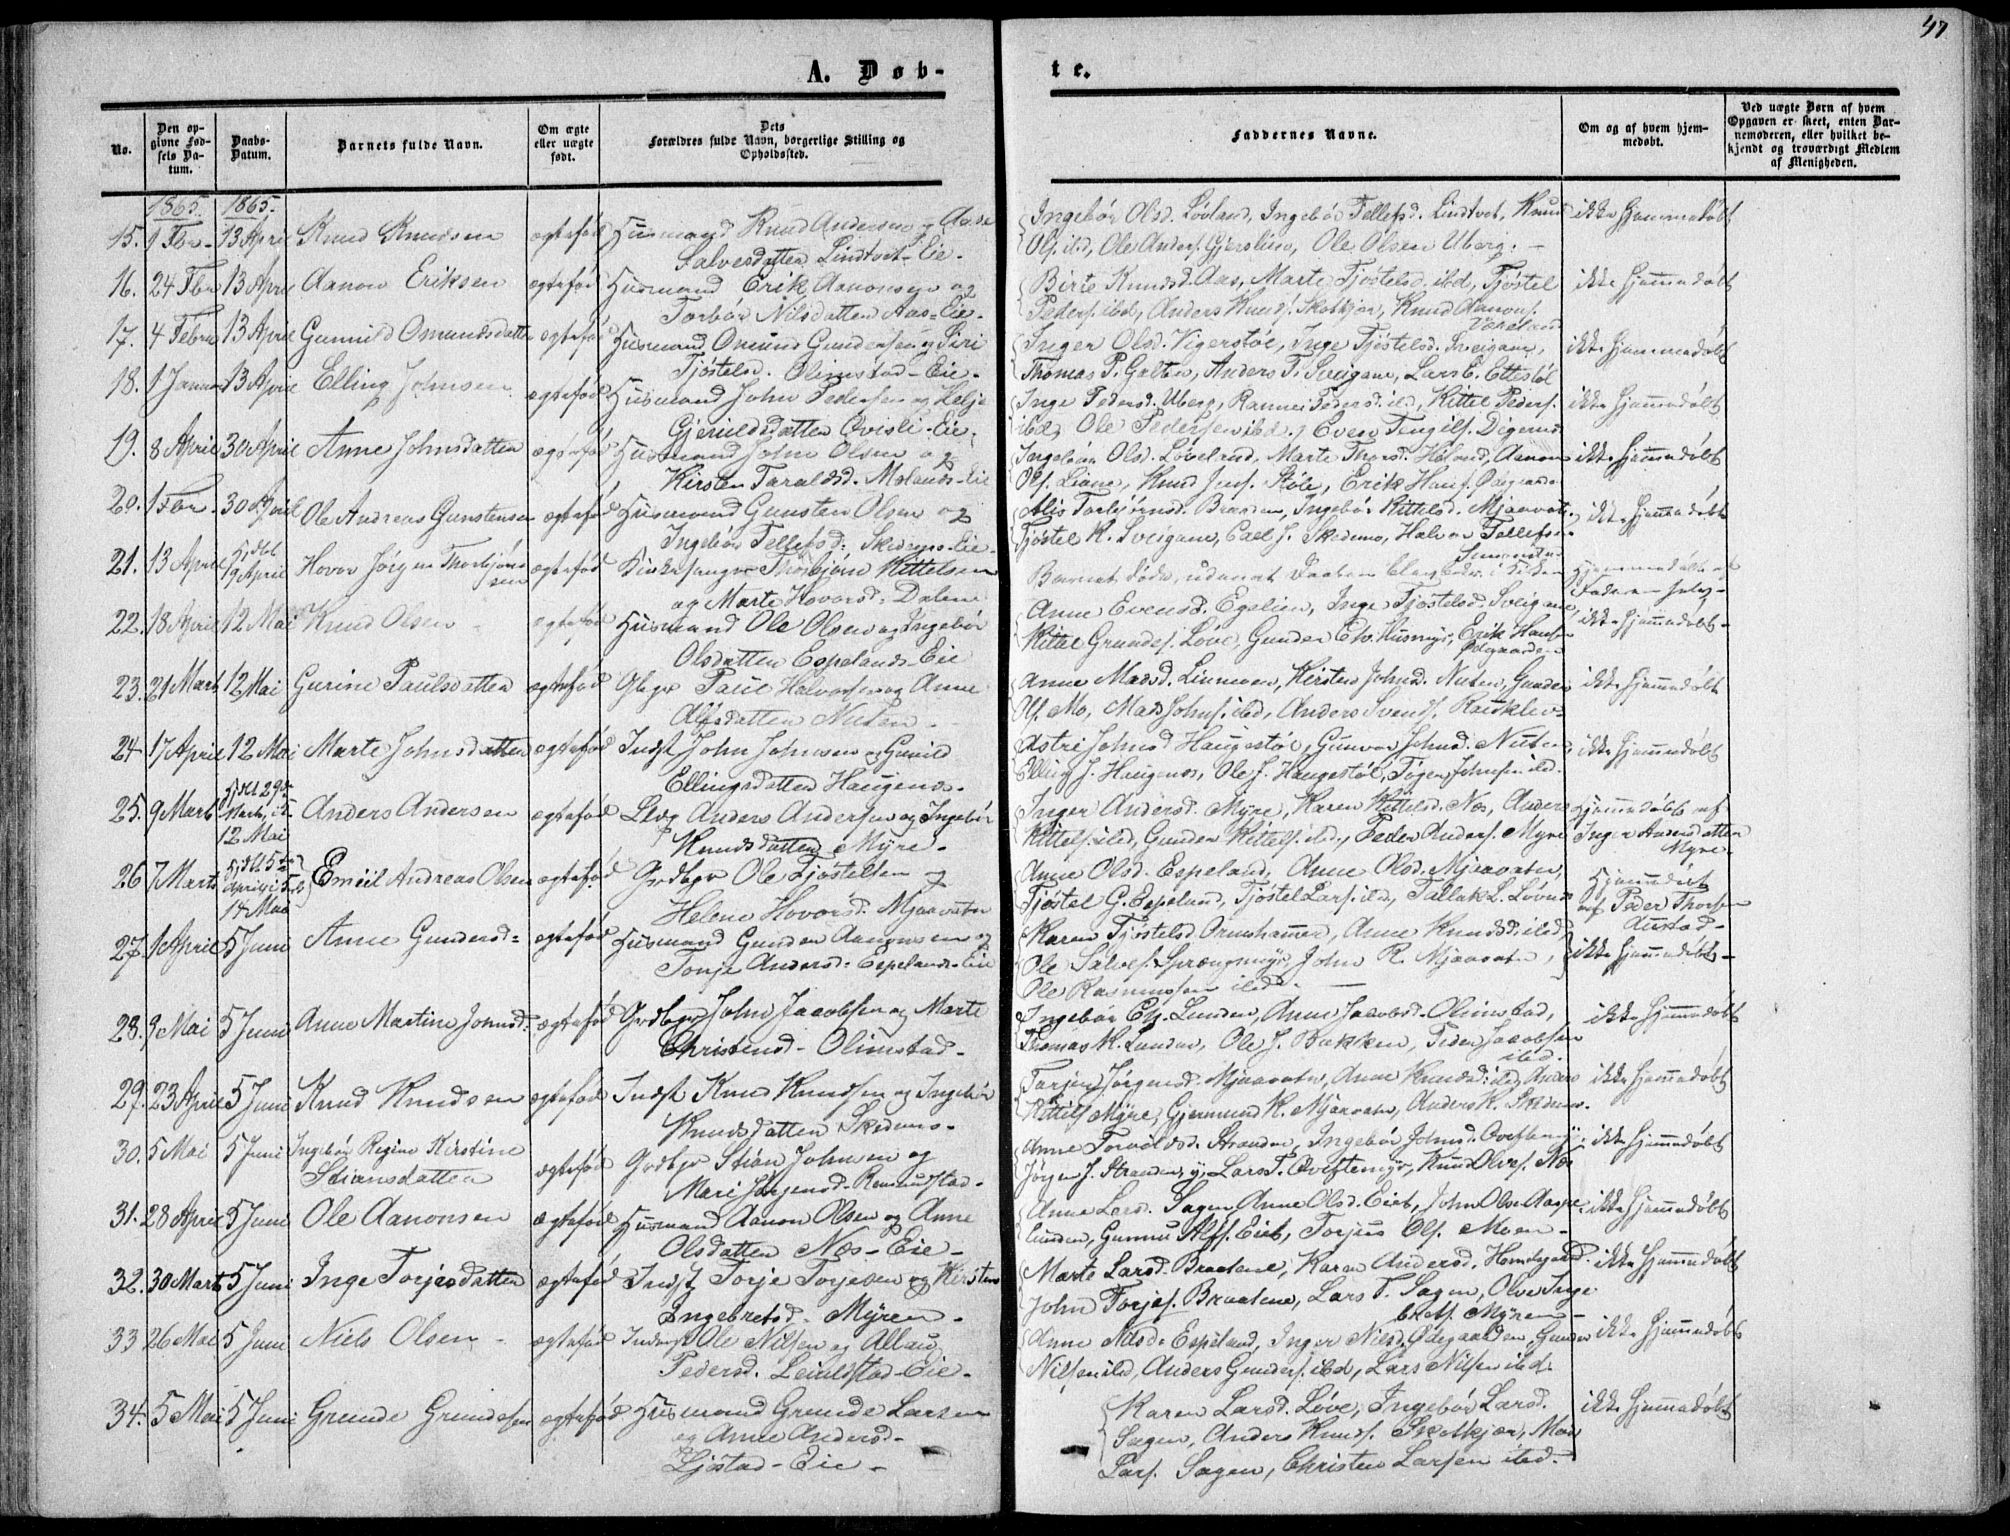 47
A. Døb-
te.
No.
Den opgivne Fødsels Datum.
Daabs-Datum.
Barnets fulde Navn.
Om ægte eller uægte født.
Dets Forældres fulde Navn, borgerlige Stilling og Opholdssted.
Faddernes Navne.
Om og af hvem hjemmedøbt.
Ved uægte Børn af hvem Opgaven er skeet, enten Barnemoderen, eller hvilket bekjendt og troværdigt Medlem af Menigheden.
1865. 1865.
15. 9 Fbr. 13 April Knud Knudsen ægtefød Husmand Knud Andersen og Aase
Salvesdatten Lindtveit-Eie.
Ingebør Olsd. Løvland, Ingebør Tellefsd. Lindtvet, Knud
Ols. ibd, Ole Anders. Gjerslien, Ole Olsen Uberg.
ikke hjemmedøbt
16. 24 Fbr 13 April Aanon Eriksen ægtefød Husmand Erik Aanonsen og
Torbør Nilsdatten Aas-Eie.
Birte Knudsd. Aas, Marte Tjøstelsd. ibd, Tjøstel
Peders. ibd, Anders Knuds. Skotkjær, Knud Aanons.
ikke hjemmedøbt
17. 4 Febr 13 April Gunnild Omundsdatten ægtefød Husmand Omund Gundersen og Siri
Tjøstelsd. Olimstad-Eie.
Inger Olsd. Vigerstøl, Inge Tjøstelsd. Sveigane,
Thomas P. Galten, Anders T. Sveigane, Lars E. Ettestøl
ikke hjemmedøbt
18. 1 Januar 13 April Elling Johnsen ægtefød Husmand John Pedersen og Helje
Gjeruldsdatten Qvisli-Eie.
Inge Pedersd. Uberg, Rannei Pedersd. ibd, Kittel Peders.
ibd, Ole Pedersen ibd, Even Tengils. Digernes
ikke hjemmedøbt
19. 8 April 30 April Anne Johnsdatten ægtefød Husmand John Olsen og
Kirsten Taraldsd. Molands-Eie
Ingebør Olsd. Løvelrud, Marte Thorsd. Heland, Aanon
Ols. Liane, Knud Jens. Støle, Erik Hans. Ødegaarden
ikke hjemmedøbt
20. 1 Fbr. 30 April Ole Andreas Gunstensen ægtefød Husmand Gunsten Olsen og
Ingebør Tellefsd. Skedsmo-Eie.
Alis Torbjørnsd. Braaten, Ingebør Kittelsd. Mjaavatn,
Tjøstel K. Sveigane, Carl J. Skedsmo, Halvor Tellefsen
Simonstad
ikke hjemmedøbt
21. 13 April hjdbt 19 April Hovor Jørgen Thorbjørnsen ægtefød Kirkesanger Thorbjørn Kittelsen
og Marte Hovorsd. Dalen
Barnet døde, uden at Daaben blev bedr. i Kirken
Hjemmedøbt af
Faderen selv-
22. 18 April 12 Mai Knud Olsen ægtefød Husmand Ole Olsen og Ingebør
Olsdatten Espelands-Eie
Anne Evensd. Egelien, Inge Tjøstelsd. Sveigane,
Kittel Grundes. Løve, Gunder Chr. Husmyr, Erik Hansen
Ødegaarden
ikke hjemmedøbt-
23. 21 Mart 12 Mai Gurine Paulsdatten ægtefød Gbgr Paul Halvorsen og Anne
Alfsdatten Nuten.
Anne Madsd. Linneren, Kirsten Johnsd. Nuten, Gunder
Ols. Mo, Mads Johns. ibd, Anders Svends. Rauklev-
ikke hjemmedøbt
24. 17 April 12 Mai Marte Johnsdatten ægtefød Indst John Johnsen og Gunild
Ellingsdatten Haugenes.
Astri Johnsd Haugestøl, Gunvor Johnsd. Nuten,
Elling J. Haugenes, Ole J. Haugestøl, Jøgen Johnsen ibd.
ikke hjemmedøbt
25. 9 Mart hjdbt 29de Marts, i K. 12 Mai Anders Andersen ægtefød Lbg Anders Andersen og Ingebør
Knudsdatten Myre.
Inger Andersd. Myre, Karen Kittelsd. Næs, Anders
Kittels. ibd, Gunder Kittels. ibd, Peder Anders. Myre
Hjemmedøbt af
Inger Andersdatten
Myre-
26. 7 Marts hjdbt 5te April i K. 14 Mai Emiil Andreas Olsen ægtefød Grdbgr Ole Tjøstelsen og
Helene Hovorsd. Mjaavatn
Anne Olsd. Espeland, Anne Olsd. Mjaavatn,
Tjøstel G. Espeland, Tjøstel Lars. ibd, Tallak L. Løvrud
Hjemmedøbt
af Peder Thorsen
Austad-
27. 1 April 5 Juni Anne Gundersd- ægtefød Husmand Gunder Aanonsen og
Tonje Andersd. Espelands-Eie
Karen Tjøstelsd Ormshammer, Anne Knudsd. ibd,
Ole Salves. Sprængmyr, John R. Mjaavatn,
Ole Rasmussen ibd.
ikke hjemmedøbt-
28. 9 Mai 5 Juni Anne Martine Johnsd. ægtefød Grdbgr John Jacobsen og Marte
Christensd- Olimstad-
Ingebør Chr. Lunden, Anne Jacobsd. Olimstad,
Thomas K. Lunden, Ole J. Bakken, Peder Jacobsen
ibd.
ikke hjemmedøbt
29. 23 April 5 Juni Knud Knudsen ægtefød Indst Knud Knudsen og Ingebør
Knudsdatten Skedsmo-
Torjer Jørgensd. Mjaavatn, Anne Knudsd. ibd, Anders
Kittils. Myre, Gjermund K. Mjaavatn, Anders K. Skedsmo.
ikke hjemmedøbt
30. 5 Mai 5 Juni Ingebør Regine Kirstine
Stiansdatten ægtefød Grdbgr Stian Johnsen og
Mari Jørgensd. Remundstad-
Anne Torvildsd. Stranden, Ingebør Johnsd. Qveftemyr,
Jørgen J. Stranden, Lars T. Qveftemyr, Knud Olves. Næs
ikke hjemmedøbt
31. 28 April 5 Juni Ole Aanonsen ægtefød Husmand Aanon Olsen og Anne
Olsdatten Næs-Eie-
Anne Larsd. Sagen, Anne Olsd. Eiet, John Olsen Aaspe-
lunden, Gunmu Alfs. Eiet, Torjus Ols. Moen-
ikke hjemmedøbt
32. 30 Mart 5 Juni Inge Torjesdatten ægtefød Indst Torje Torjesen og Kirsten
Ingebretsd- Myren-
Marte Larsd. Braatene, Karen Andersd. Hemdgaard.
John Torjes. Braatene, Lars T. Sagen, Olve Inge
brets. Myren-
ikke hjemmedøbt
33 26 Mai 5 Juni Niels Olsen ægtefød Inderst Ole Nilsen og Allau
Pedersd. Leiuldstad-Eie-
Anne Nilsd. Espeland, Inger Nilsd. Ødegaarden, Gunder
Nilsen ibd, Anders Gunders. ibd, Lars Nilsen ibd-
ikke hjemmedøbt
34. 5 Mai 5 Juni Grunde Grundesen ægtefød Husmand Grunde Larsen
og Anne Andersd-
Ljøstad-Eie-
Karen Larsd. Løve, Ingebør Larsd.
Sagen, Anders Knuds. Skotkjær, Mads
Lars. Sagen, Christen Larsen ibd-
ikke hjemmedøbt